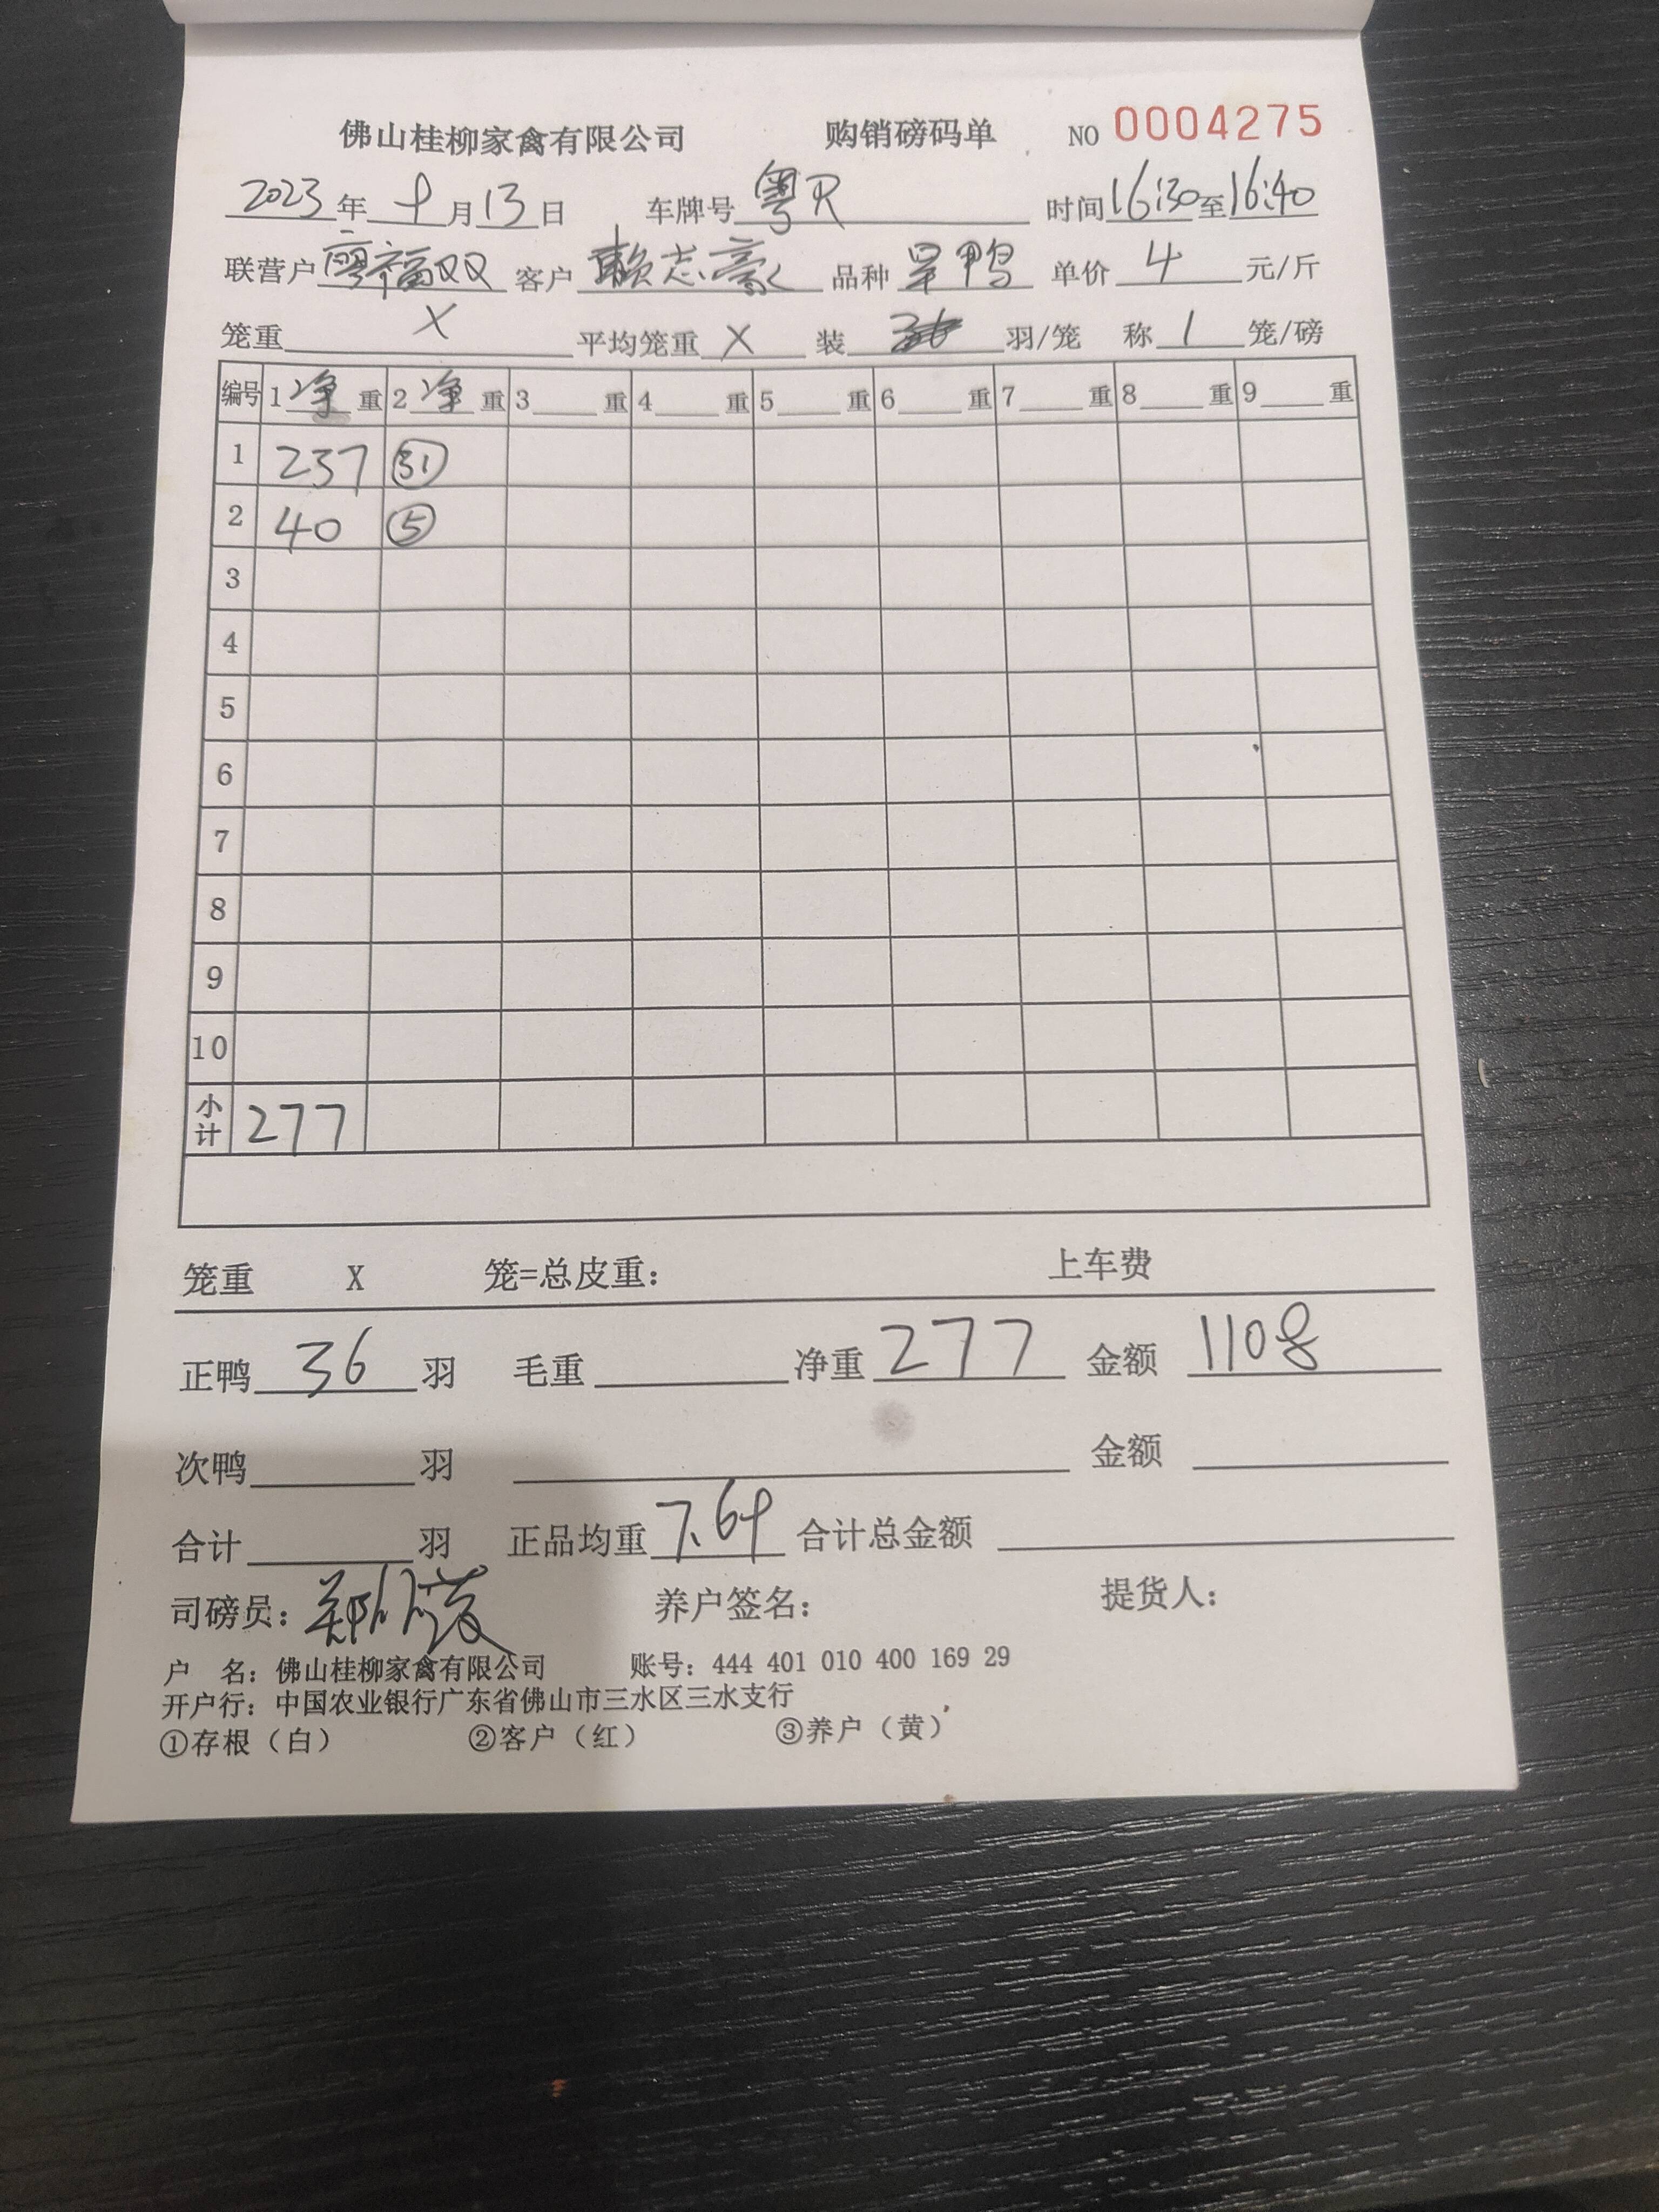 佛山桂柳家禽有限公司 购销磅码单 NO 0004275
2023年 十 月 13 日 车牌号 粤R 时间 16:30 至 16:40
联营户 廖福双 客户 赖志豪 品种 旱鸭 单价 4 元/斤
笼重 X 平均笼重 X 装 羽/笼 称 1 笼/磅
编号 1 净 重 2 净 重 3 重 4 重 5 重 6 重 7 重 8 重 9 重
1 237 31
2 40 5
3
4
5
6
7
8
9
10
小计 277
笼重 X 笼=总皮重: 上车费
正鸭 36 羽 毛重 净重 277 金额 1108
次鸭 羽 金额
合计 羽 正品均重 7.69 合计总金额
司磅员: 养户签名: 提货人:
户 名: 佛山桂柳家禽有限公司 账号: 444 401 010 400 169 29
开户行: 中国农业银行广东省佛山市三水区三水支行
①存根（白） ②客户（红） ③养户（黄）